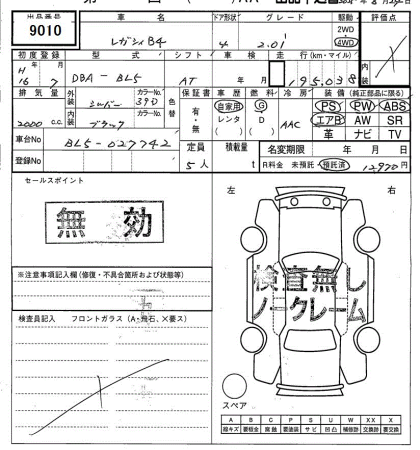 出品番号 車名 ドア形状 グレード 駆動 評価点
9010 レガシィB4 4 2.0i 2WD 4WD
初度登録 型式 シフト 車検 走行(km・マイル)
H 16 年 7 月 DBA-BL5 AT 年 月 195,038
排気量 外装 カラーNo. 色替 保証書 車歴 燃料 冷房 装備(純正部品に限る)
2000 c.c. シルバー 39D 有・無 自家用 レンタ G D AAC PS PW ABS
内装 ブラック カラーNo. エアB AW SR
革 ナビ TV
車台No BL5-027742 定員 積載量 名変期限 年 月 日
登録No 5人 t R料金 未預託・預託済 12970円
セールスポイント 左 右
無効
※注意事項記入欄(修復・不具合箇所および状態等)
検査無し
ノークレーム
検査員記入 フロントガラス(A・飛石、×要ス)
スペア
A B C P S U W XX X
線キズ 要板金 腐蝕 要塗装 サビ 凹凸 補修跡 交換跡 要交換